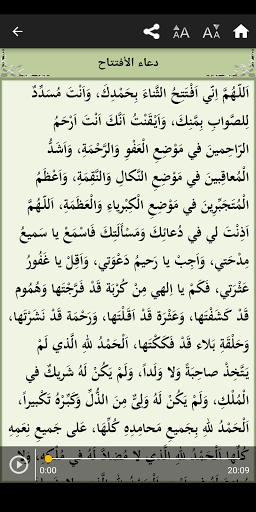 AA AA
دعاء الأفتتاح
اَللّهُمَّ اِنّي اَفْتَتِحُ الثَّناءَ بِحَمْدِكَ، وَاَنْتَ مُسَدِّدٌ
لِلصَّوابِ بِمَنِّكَ، وَاَيْقَنْتُ اَنَّكَ اَنْتَ اَرْحَمُ
الرّاحِمينَ في مَوْضِعِ الْعَفْوِ وَالرَّحْمَةِ، وَاَشَدُّ
الْمُعاقِبينَ في مَوْضِعِ النَّكالِ وَالنَّقِمَةِ، وَاَعْظَمُ
الْمُتَجَبِّرينَ في مَوْضِعِ الْكِبْرِياءِ وَالْعَظَمَةِ، اَللّهُمَّ
اَذِنْتَ لي في دُعائِكَ وَمَسْأَلَتِكَ فَاسْمَعْ يا سَميعُ
مِدْحَتي، وَاَجِبْ يا رَحيمُ دَعْوَتي، وَاَقِلْ يا غَفُورُ
عَثْرَتي، فَكَمْ يا اِلهي مِنْ كُرْبَةٍ قَدْ فَرَّجْتَها وَهُمُومٍ
قَدْ كَشَفْتَها، وَعَثْرَةٍ قَدْ اَقَلْتَها، وَرَحْمَةٍ قَدْ نَشَرْتَها،
وَحَلْقَةِ بَلاءٍ قَدْ فَكَكْتَها، اَلْحَمْدُ للهِ الَّذي لَمْ
يَتَّخِذْ صاحِبَةً وَلا وَلَداً، وَلَمْ يَكُنْ لَهُ شَريكٌ في
الْمُلْكِ، وَلَمْ يَكُنْ لَهُ وَلِيٌّ مِنَ الذُّلِّ وَكَبِّرْهُ تَكْبيراً،
اَلْحَمْدُ للهِ بِجَميعِ مَحامِدِهِ كُلِّهَا، عَلى جَميعِ نِعَمِهِ
كُلِّها اَلْحَمْدُ للهِ الَّذي لا مُضادَّ لَهُ في مُلْكِهِ، وَلا
0:00 20:09